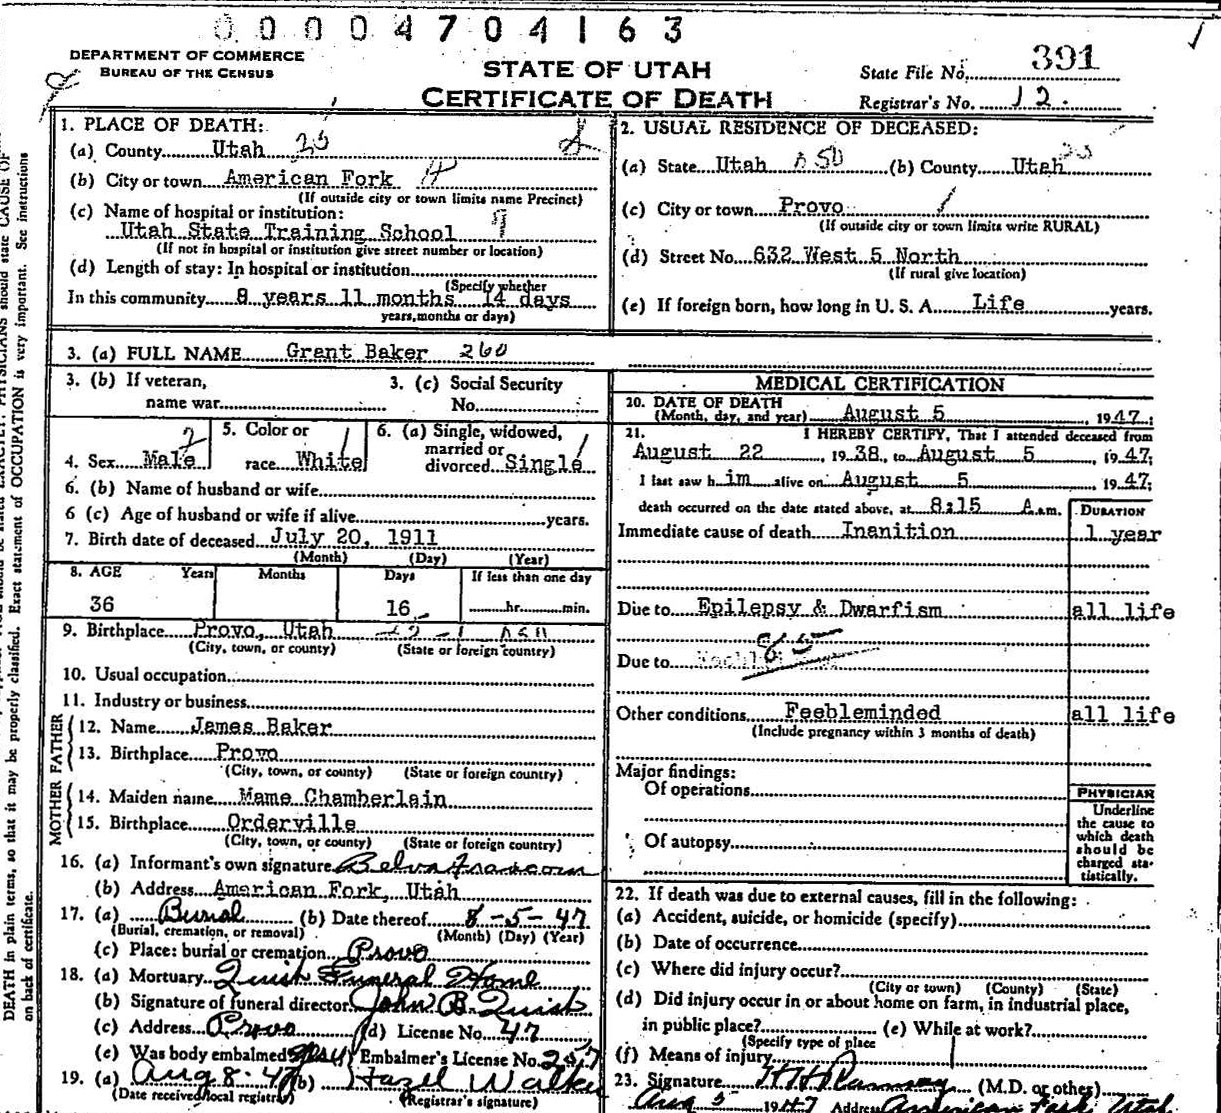 00004704163
DEPARTMENT OF COMMERCE
BUREAU OF THE CENSUS
STATE OF UTAH
CERTIFICATE OF DEATH
State File No. 391
Registrar's No. 12.
1. PLACE OF DEATH:
(a) County Utah
(b) City or town American Fork
(If outside city or town limits name Precinct)
(c) Name of hospital or institution:
Utah State Training School
(If not in hospital or institution give street number or location)
(d) Length of stay: In hospital or institution
(Specify whether
In this community 8 years 11 months 14 days
years, months or days)
2. USUAL RESIDENCE OF DECEASED:
(a) State Utah (b) County Utah
(c) City or town Provo
(If outside city or town limits write RURAL)
(d) Street No. 632 West 5 North
(If rural give location)
(e) If foreign born, how long in U. S. A. Life years.
3. (a) FULL NAME Grant Baker 260
3. (b) If veteran,
name war
3. (c) Social Security
No.
4. Sex Male
5. Color or
race White
6. (a) Single, widowed,
married or
divorced Single
6. (b) Name of husband or wife
6 (c) Age of husband or wife if alive years.
7. Birth date of deceased July 20, 1911
(Month) (Day) (Year)
8. AGE Years Months Days If less than one day
36 16 hr. min.
9. Birthplace Provo, Utah
(City, town, or county) (State or foreign country)
10. Usual occupation
11. Industry or business
FATHER
12. Name James Baker
13. Birthplace Provo
(City, town, or county) (State or foreign country)
MOTHER
14. Maiden name Mame Chamberlain
15. Birthplace Orderville
(City, town, or county) (State or foreign country)
16. (a) Informant's own signature Belva
(b) Address American Fork, Utah
17. (a) Burial (b) Date thereof 8-5-47
(Burial, cremation, or removal) (Month) (Day) (Year)
(c) Place: burial or cremation Provo
18. (a) Mortuary Funeral Home
(b) Signature of funeral director John B.
(c) Address Provo (d) License No. 47
(e) Was body embalmed Embalmer's License No. 257
19. (a) Aug 8-47 (b) Hazel Walke
(Date received local registrar) (Registrar's signature)
MEDICAL CERTIFICATION
20. DATE OF DEATH
(Month, day, and year) August 5 1947;
21. I HEREBY CERTIFY, That I attended deceased from
August 22, 1938, to August 5, 1947;
I last saw him alive on August 5, 1947;
death occurred on the date stated above, at 8:15 A.m.
DURATION
Immediate cause of death Inanition 1 year
Due to Epilepsy & Dwarfism all life
Due to
Other conditions Feebleminded all life
(Include pregnancy within 3 months of death)
Major findings:
Of operations
Of autopsy
PHYSICIAN
Underline
the cause to
which death
should be
charged sta-
tistically.
22. If death was due to external causes, fill in the following:
(a) Accident, suicide, or homicide (specify)
(b) Date of occurrence
(c) Where did injury occur?
(City or town) (County) (State)
(d) Did injury occur in or about home on farm, in industrial place,
in public place? (e) While at work?
(Specify type of place
(f) Means of injury
23. Signature H H Ramsay (M.D. or other)
Aug 5 1947 Address American Fork Utah
DEATH in plain terms, so that it may be properly classified. Exact statement of OCCUPATION is very important. See instructions
on back of certificate.